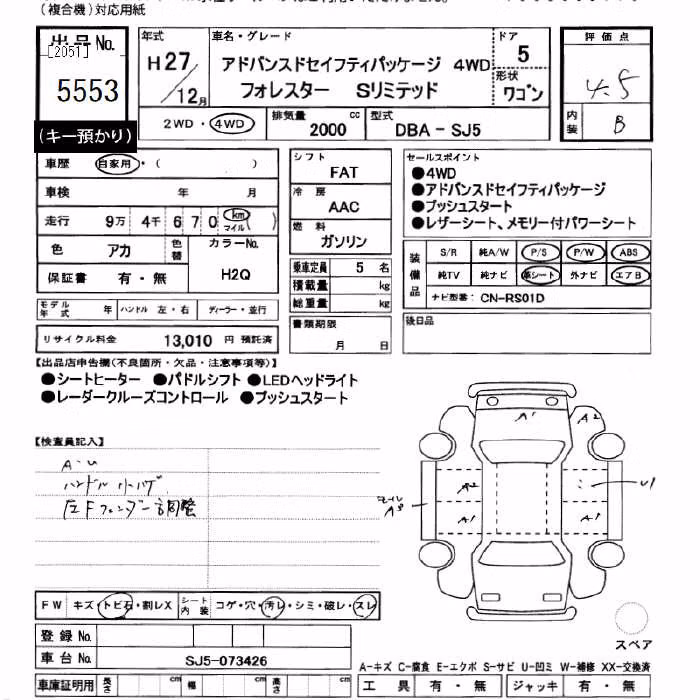 （複合機）対応用紙
出品 No.
[2051]
5553
(キー預かり)
年式
H27
12月
車名・グレード
アドバンスドセイフティパッケージ 4WD
フォレスター Sリミテッド
ドア
5
形状
ワゴン
2WD・4WD
排気量
2000 cc
型式
DBA - SJ5
評価点
4.5
内装
B
車歴 自家用・( )
車検 年 月
走行 9万 4千 6 7 0 km マイル ( )
色 アカ 色替
カラーNo.
H2Q
保証書 有・無
モデル年式 年 ハンドル 左・右 ディーラー・並行
リサイクル料金 13,010 円 預託済
シフト
FAT
冷房
AAC
燃料
ガソリン
乗車定員 5 名
積載量 kg
総重量 kg
書類期限
月 日
セールスポイント
●4WD
●アドバンスドセイフティパッケージ
●プッシュスタート
●レザーシート、メモリー付パワーシート
装備品
S/R 純A/W P/S P/W ABS
純TV 純ナビ 革シート 外ナビ エアB
ナビ型番: CN-RS01D
後日品
【出品店申告欄(不良箇所・欠品・注意事項等)】
●シートヒーター ●パドルシフト ●LEDヘッドライト
●レーダークルーズコントロール ●プッシュスタート
【検査員記入】
A・U
ハンドル
右Fフェンダー調整
A1 A2
A2 U1
モール A3
A1 A1
スペア
FW キズ・トビ石・割レX シート内装 コゲ・穴・汚レ・シミ・破レ・スレ
登録 No.
車台 No. SJ5-073426
車庫証明用 長さ cm 幅 cm 高さ cm
A-キズ C-腐食 E-エクボ S-サビ U-凹ミ W-補修 XX-交換済
工具 有・無 ジャッキ 有・無